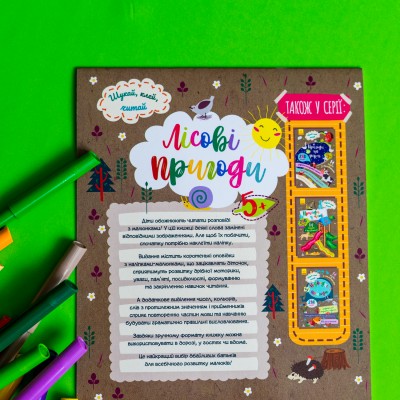 Шукай, клей,
читай
Лісові
пригоди
5+
ТАКОЖ У СЕРІЇ:
Діти обожнюють читати розповіді
з малюнками! У цій книжці деякі слова замінені
відповідними зображеннями. Але щоб їх побачити,
спочатку потрібно наклеїти наліпку.
Видання містить коротенькі оповідки
з наліпками-малюнками, що зацікавлять діточок,
сприятимуть розвитку дрібної моторики,
уваги, пам'яті, посидючості, формуванню
та закріпленню навичок читання.
А додаткове виділення чисел, кольорів,
слів з протилежним значенням і прийменників
сприяє повторенню частин мови та навчанню
будувати граматично правильні висловлювання.
Завдяки зручному формату книжку можна
використовувати в дорозі, у гостях чи вдома.
Це найкращий вибір дбайливих батьків
для всебічного розвитку малюків!